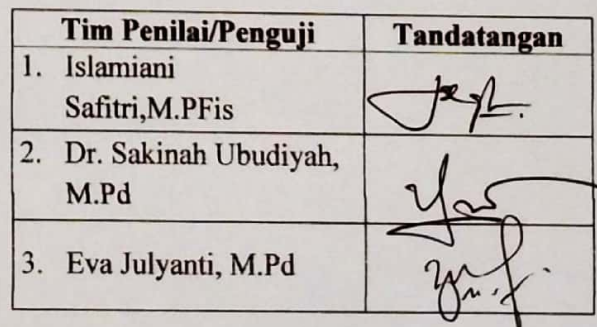 Tim Penilai/Penguji Tandatangan
1. Islamiani
Safitri,M.PFis
2. Dr. Sakinah Ubudiyah,
M.Pd
3. Eva Julyanti, M.Pd